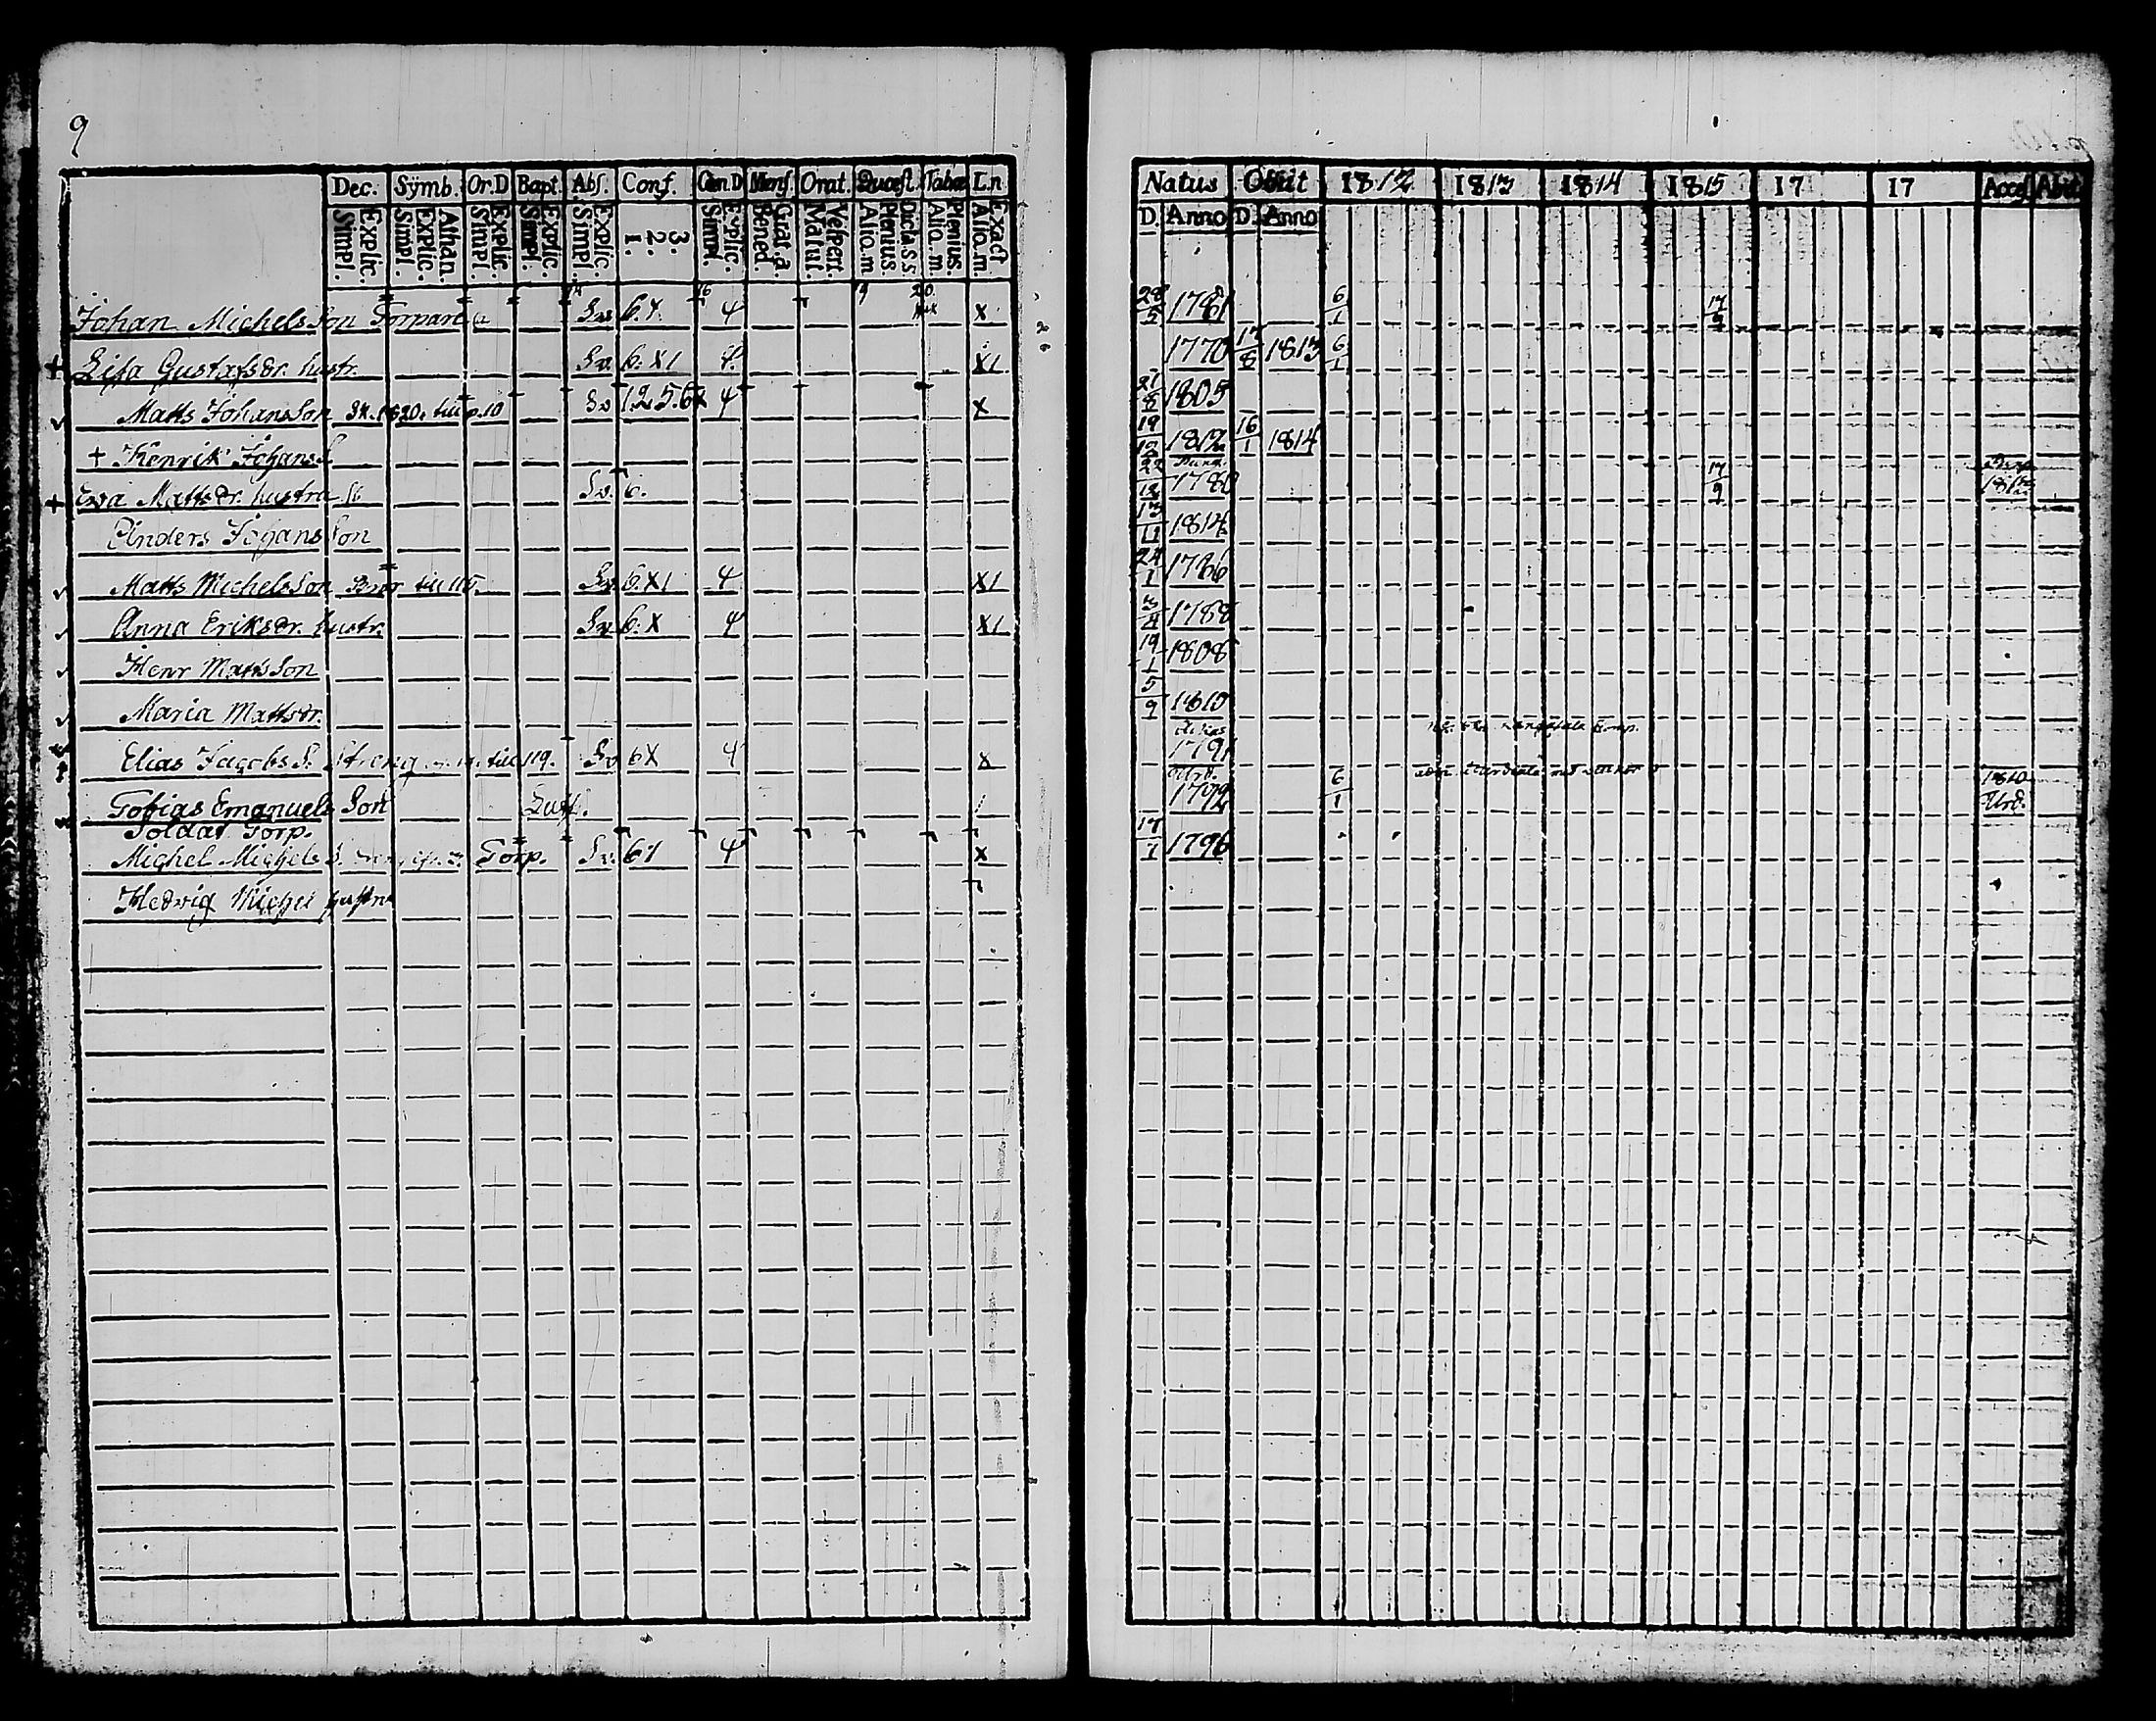 9
Dec. Symb. Or.D Bapt. Abs. Conf. Cœn D Mens. Orat. Quæst. Tabæ L.n
Explic. Simpl. Athan. Explic. Simpl. Explic. Simpl. Explic. Simpl. Explic. Simpl. 3. 2. 1. Explic. Simpl. Grat. a. Bened. Vespert. Matut. Dicta s.s. Plenius Alio. m Plenius. Alio. m. Exact Alio. m.
Johan Michelsson Torpare Sv 6. X. 4 X
+ Lisa Gustafsdr. hustr. Sv. 6. X1 4. X1
Matts Johansson Sk. 1820. till p. 10 Sv 1.2.5.6X 4 X
+ Henrik Johans S.
+ Ewa Mattsdr. hustru Sv. 6.
Anders Johansson
Matts Michelsson Bror till 115. Sv. 6. X1 4 X1
Anna Eriksdr. hustr. Sv. 6. X 4 X1
Henr Mattsson
Maria Mattsdr.
Elias Jacobs S. till 119. Sv 6X 4 X
Tobias Emanuels Son
Soldat Torp.
Michel Michels S. Torp. Sv. 61 4 X
Hedvig Michel hustru
Natus Obiit 1812 1813 1814 1815 17 17 Acces Abit
D. Anno D. Anno
28/5 1781 6/1 17/9
1770 17/8 1813 6/1
21/8 1805
19/12 1812 16/1 1814
1780 17/9
13/11 1814
24/1 1786
3/4 1788
19/1 1808
5/9 1810
1791
1792 6/1 1810 Urd.
17/7 1796